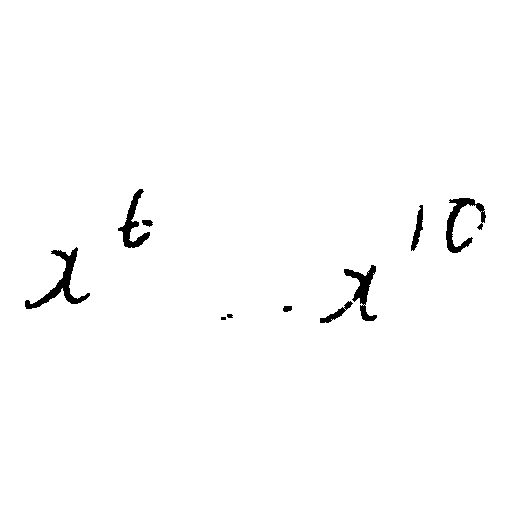 x^6 .. . x^10